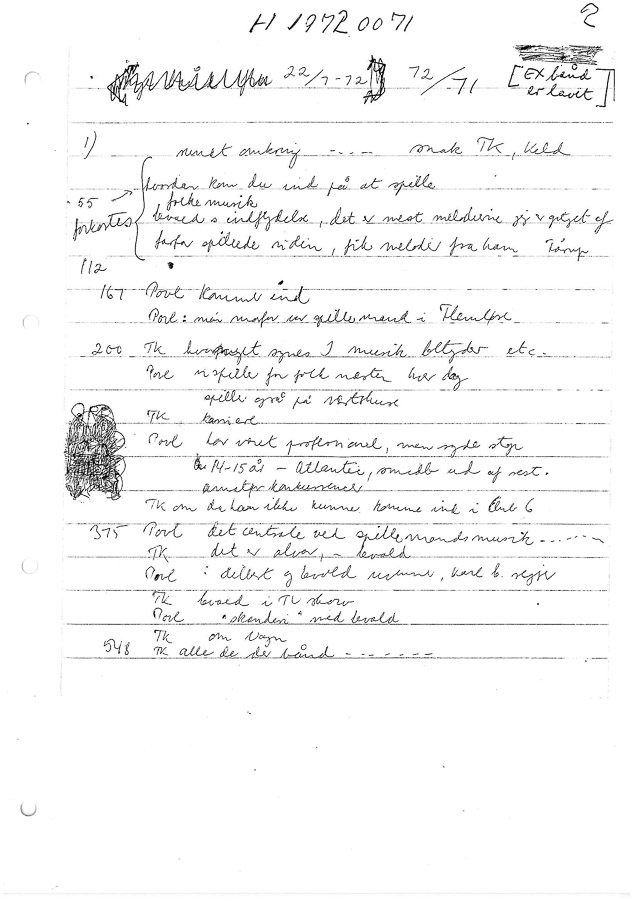 H 1972 0071
2
22/7-72 72/71 [EX bånd
er lavet]
1) omkring ---- snak TK, Keld
hvordan kom du ind på at spille
55 folkemusik
forkortes indflydelse, det er mest melodierne jeg er af
farfar spillede violin, fik melodier fra ham
112
167 Povl kommer ind
Povl: min morfar var spillemand i
200 TK synes I musik betyder etc.
Povl vi spiller for folk næsten hver dag
spiller også på værtshuse
TK karriere
Povl har været professionel, men sagde stop
14-15 år - Atlantic, smidt ud af rest.
amatør konkurrencer
TK om da han ikke kunne komme ind i Club 6
375 Povl det centrale ved spillemandsmusik ------
TK det er alvor, - Evald
Povl : og Evald
TK Evald i TV show
Povl "skænderi" med Evald
TK om Vagn
548 TK alle de der bånd -------